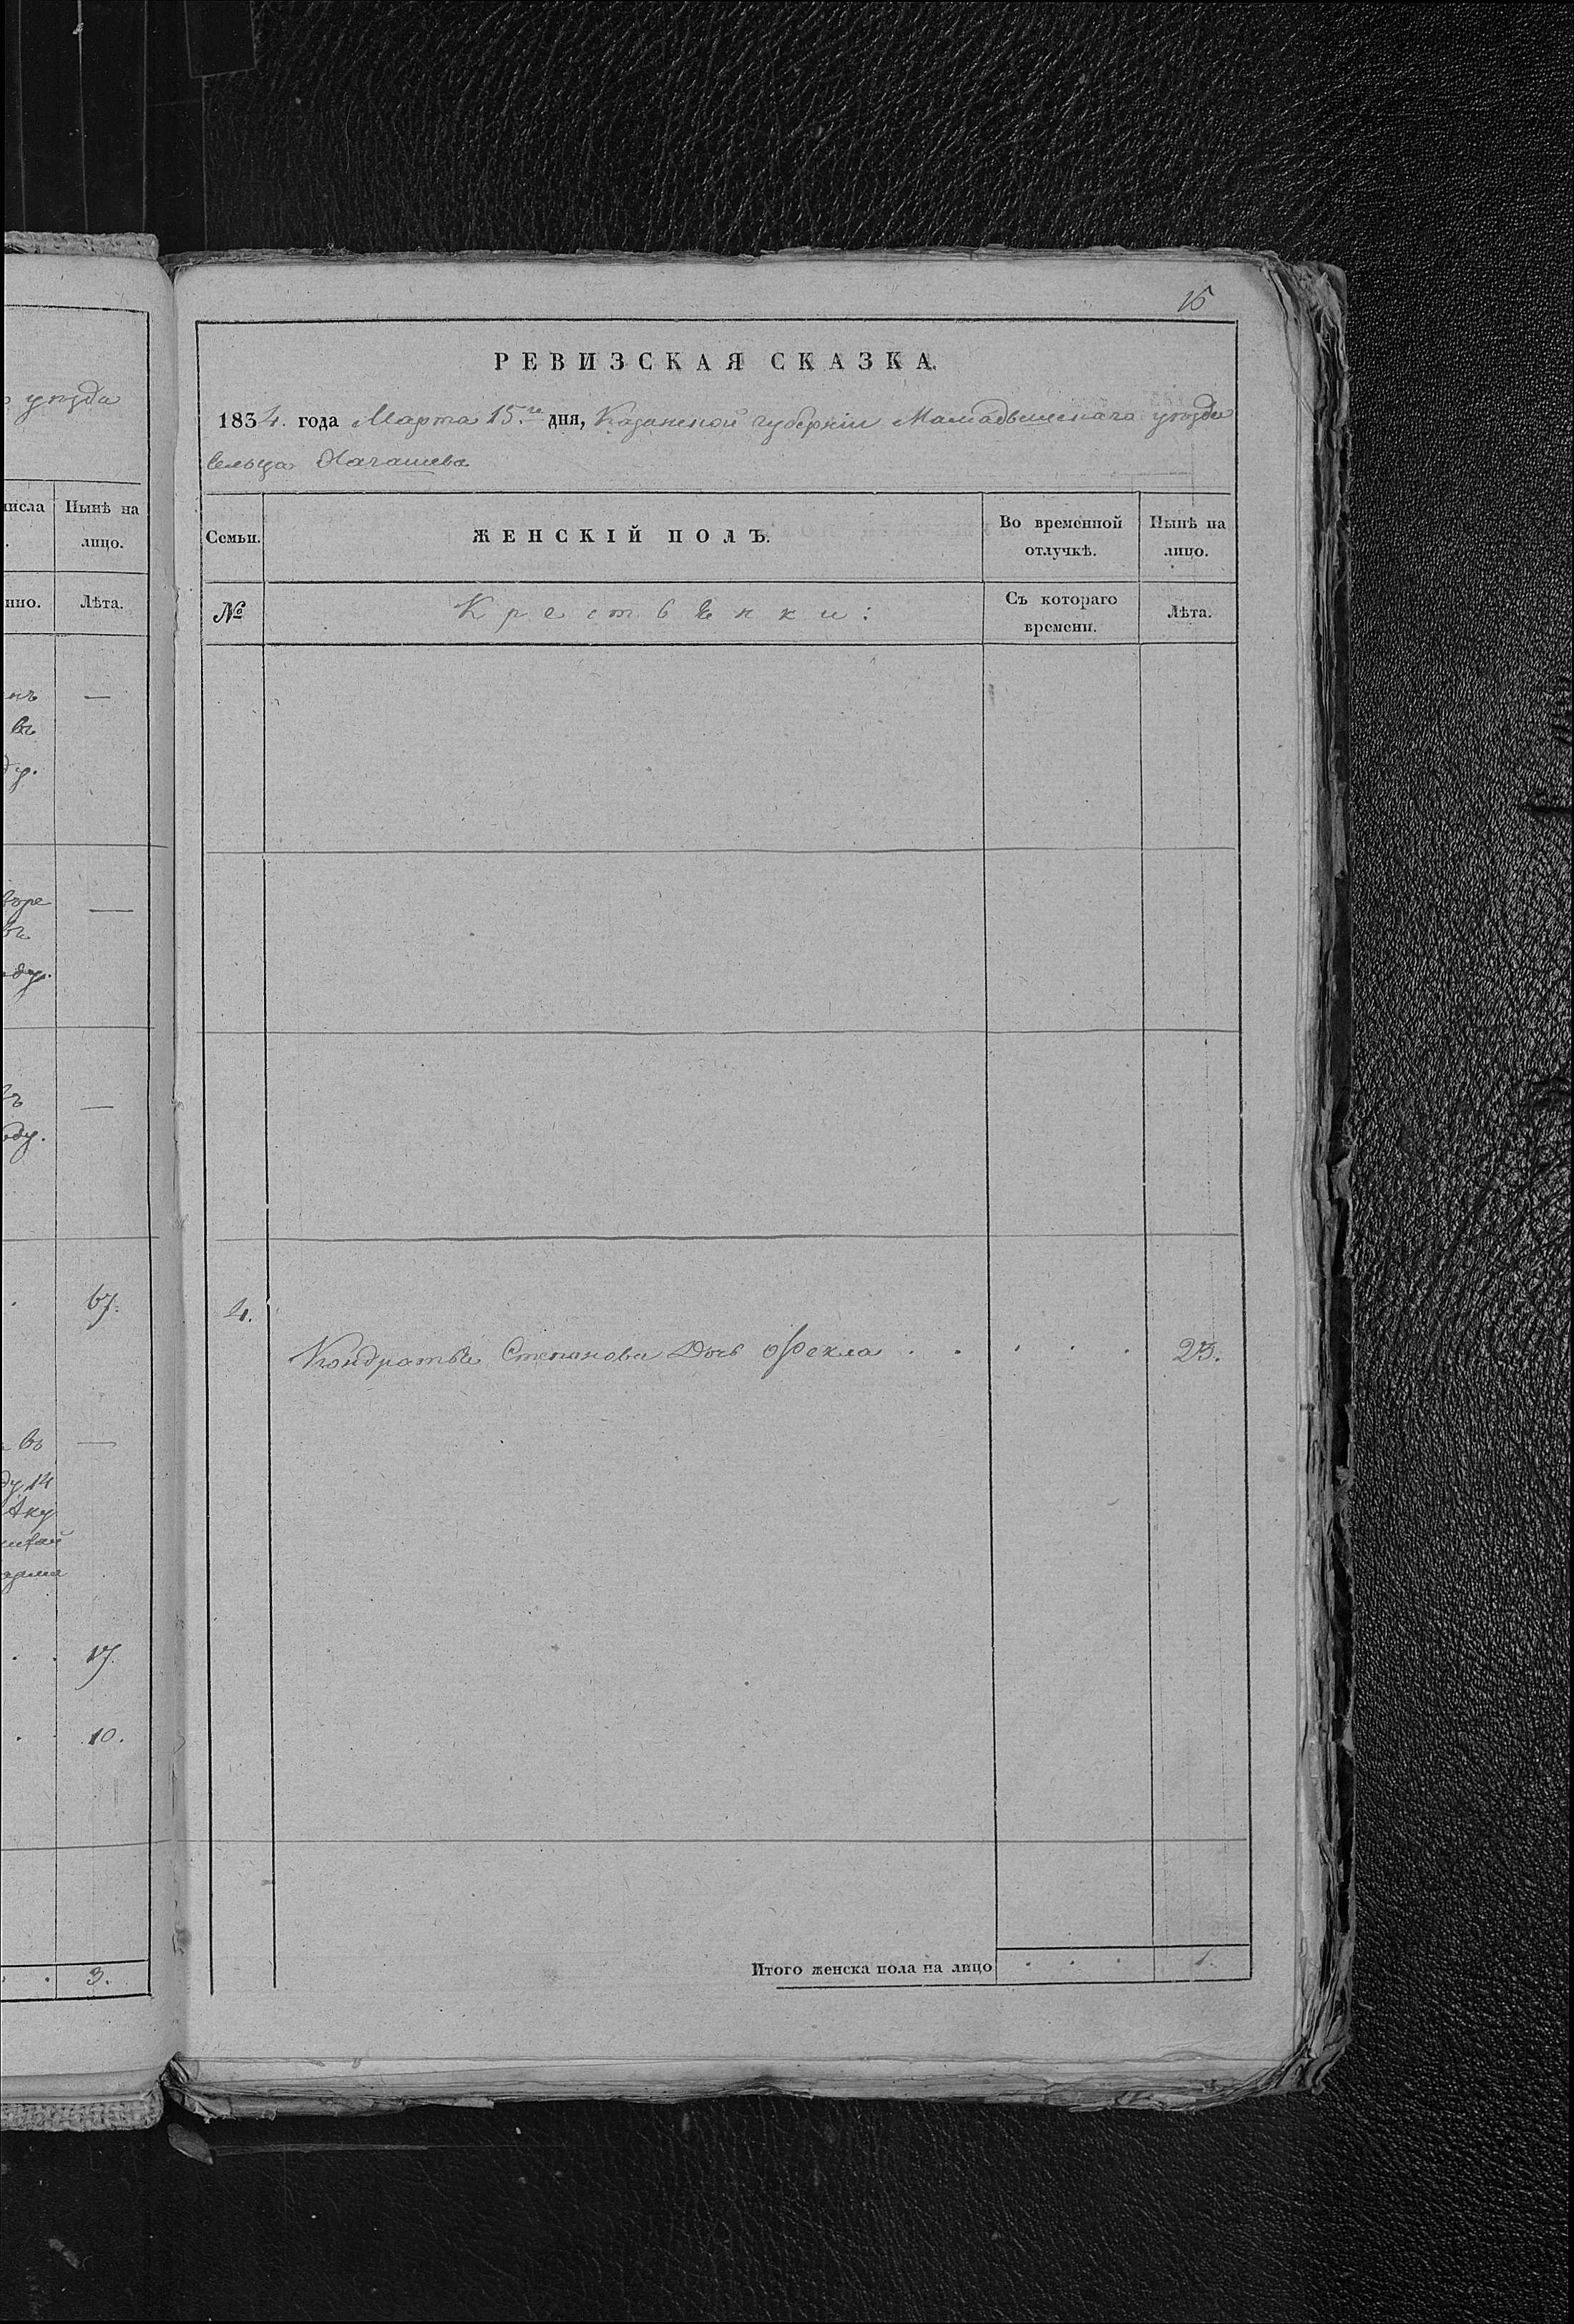 уѣзда
числа
Нынѣ на
лицо.
нно.
Лѣта.
въ
67.
въ
17.
10.
3.
15
РЕВИЗСКАЯ СКАЗКА.
1834. года Марта 15.го дня, Казанской губерніи Мамадышскаго уѣзда
сельца
Семьи.
ЖЕНСКІЙ ПОЛЪ.
Во временной
отлучкѣ.
Нынѣ на
лицо.
№
Крестьянки:
Съ котораго
времени.
Лѣта.
4.
Кондратья Степанова Дочь Фекла . . . . . 23.
Итого женска пола на лицо . . . 1.